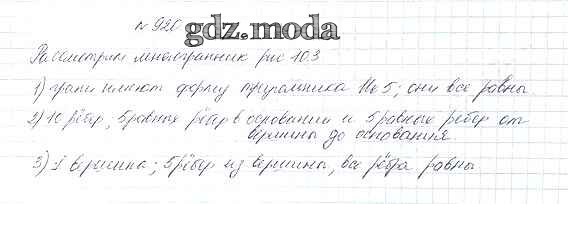 № 920
gdz.moda
Рассмотрим многогранник рис 10.3
1) грани имеют форму треугольника Их 5; они все равны
2) 10 рёбер, 5 равных рёбер в основании и 5 равных рёбер от
вершины до основания.
3) 1 вершина; 5 рёбер из вершины, все рёбра равны